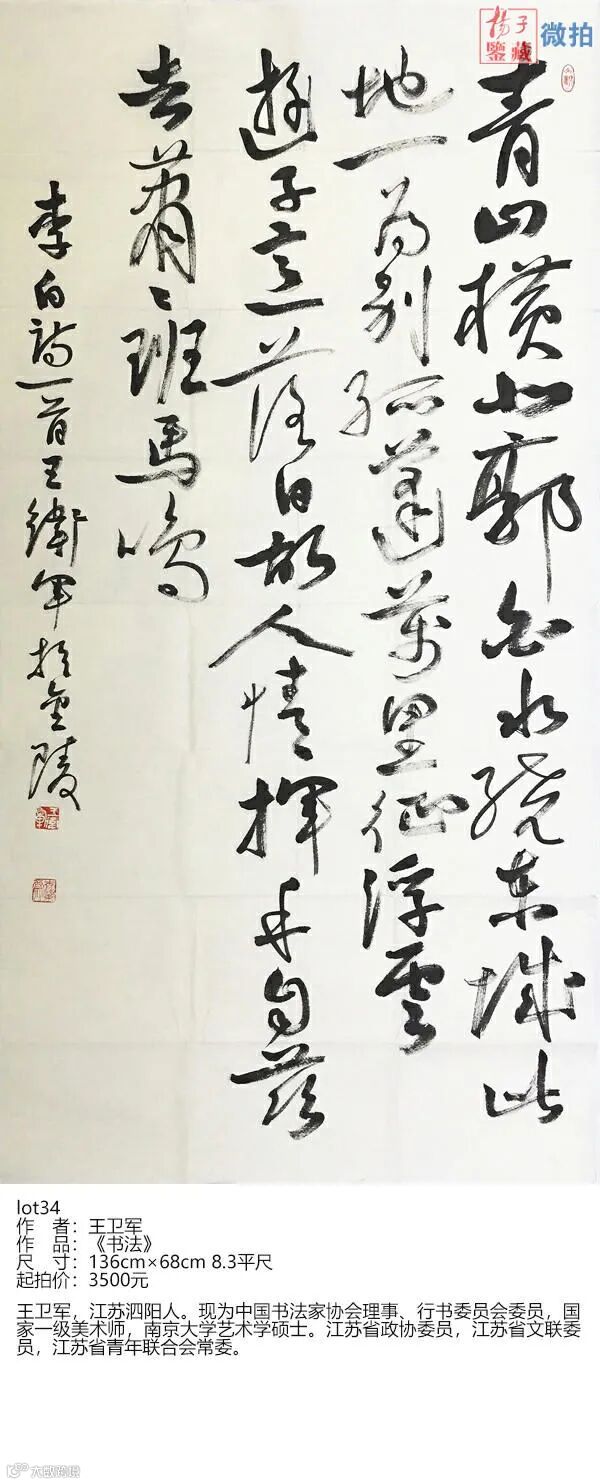 揚子
鑒藏
微拍
青山橫北郭白水繞東城此
地一為别孤蓬萬里征浮雲
遊子意落日故人情揮手自茲
去蕭〻班馬鳴
李白詩一首王衛軍於金陵
lot34
作 者：王卫军
作 品：《书法》
尺 寸：136cm×68cm 8.3平尺
起拍价：3500元
王卫军，江苏泗阳人。现为中国书法家协会理事、行书委员会委员，国
家一级美术师，南京大学艺术学硕士。江苏省政协委员，江苏省文联委
员，江苏省青年联合会常委。
大数跨境